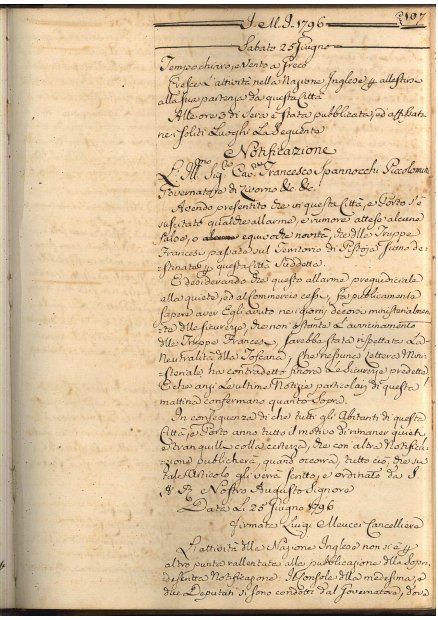 J. M. J. 1796
107
Sabato 25 Giugno
Tempo chiaro, e vento a Greco
Cresce l'attività nella Nazione Inglese p allestire
alla sua partenza da questa Città
Alle ore 3 di Sera è stata pubblicata, ed affissata
nei soliti Luoghi La seguente
Notificazione
L'Ill.mo Sig.e Cav.re Francesco Spannocchi Piccolomini
Governatore di Livorno &c. &c.
Avendo presentito che in questa Città, e Porto s'è
suscitato qualche allarme, e rumore attese alcune
false, o equivoche novità, che dlle Truppe
Francesi passate sul Territorio di Pistoja siino de-
stinate p questa Città suddetta
E desiderando che questo allarme pregiudiciale
alla quiete, ed al Commercio cessi, fa pubblicamente
sapere aver Egli avuto nei giorni decorsi ministerialmen-
te dlle sicurezze, che non ostante l'avvicinamento
dlle Truppe Francesi, sarebbe stata rispettata La
Neutralità dlla Toscana, che nessuna Lettera Mini-
steriale ha contradetto finora Le sicurezze predette
E che anzi Le ultime Notizie particolari di questa
mattina confermano quanto sopra.
In conseguenza di che tutti gli Abitanti di questa
Città, e Porto anno tutto il motivo di rimaner quieti
e tranquilli colla certezza, che con altra Notifica-
zione pubblicherà, quando occorra, tutto ciò, che su
tale Articolo gli verrà scritto, e ordinato da S.
A. R. Nostro Augusto Signore
Data Li 25 Giugno 1796
firmata Luigi Meucci Cancelliere
L'attività dlla Nazione Inglese non si è p
altro punto rallentata alla pubblicazione dlla sopra
descritta Notificazione. Il Console dlla medesima, e
due Deputati si sono condotti dal Governatore, dove